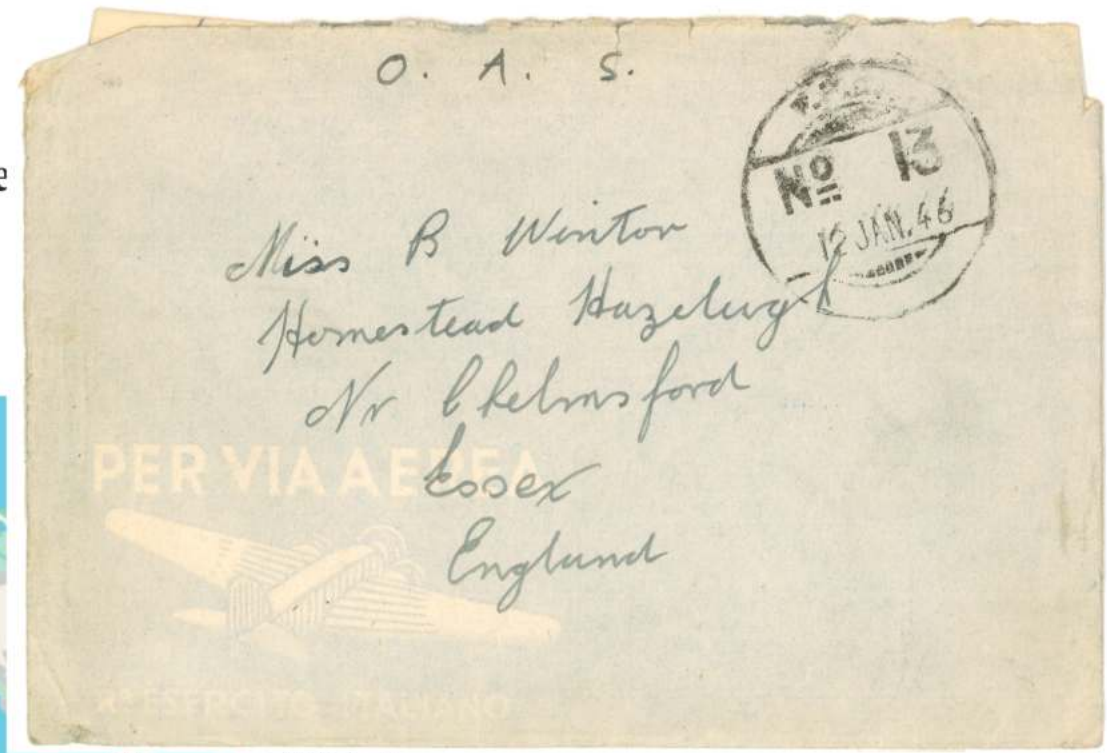 O. A. S.
No 13
12 JAN. 46
Miss B Winton
Homestead Hazeleigh
Nr Chelmsford
Essex
England
PER VIA AEREA
ESERCITO ITALIANO